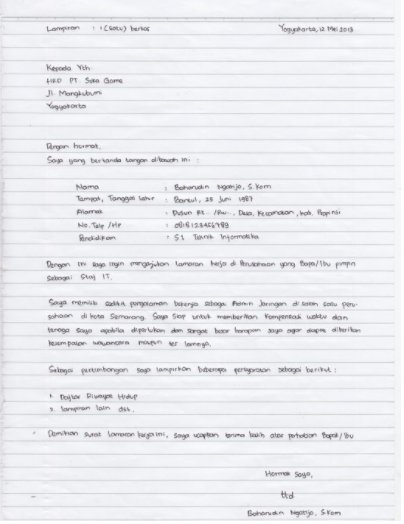 Lampiran : 1 (Satu) berkas Yogyakarta, 12 Mei 2013
Kepada Yth.
HRD PT. Suka Game
Jl. Mangkubumi
Yogyakarta
Dengan hormat,
Saya yang bertanda tangan dibawah ini :
Nama : Baharudin Ngatijo, S.Kom
Tempat, Tanggal Lahir : Bantul, 25 Juni 1987
Alamat : Dusun Rt.. /Rw.., Desa, Kecamatan, Kab, Propinsi
No. Telp /Hp : 0818123456789
Pendidikan : S1 Teknik Informatika
Dengan ini saya ingin mengajukan lamaran kerja di Perusahaan yang Bapak/Ibu pimpin
sebagai Staf IT.
Saya memiliki sedikit pengalaman bekerja sebagai Admin Jaringan di salah satu peru-
sahaan di kota Semarang. Saya siap untuk memberikan kompensasi waktu dan
tenaga saya apabila diperlukan dan sangat besar harapan saya agar dapat diberikan
kesempatan wawancara maupun tes lainnya.
Sebagai pertimbangan saya lampirkan beberapa persyaratan sebagai berikut :
1. Daftar Riwayat Hidup
2. lampiran lain dst.
Demikian surat lamaran kerja ini, saya ucapkan terima kasih atas perhatian Bapak/Ibu
Hormat Saya,
ttd
Baharudin Ngatijo, S.Kom